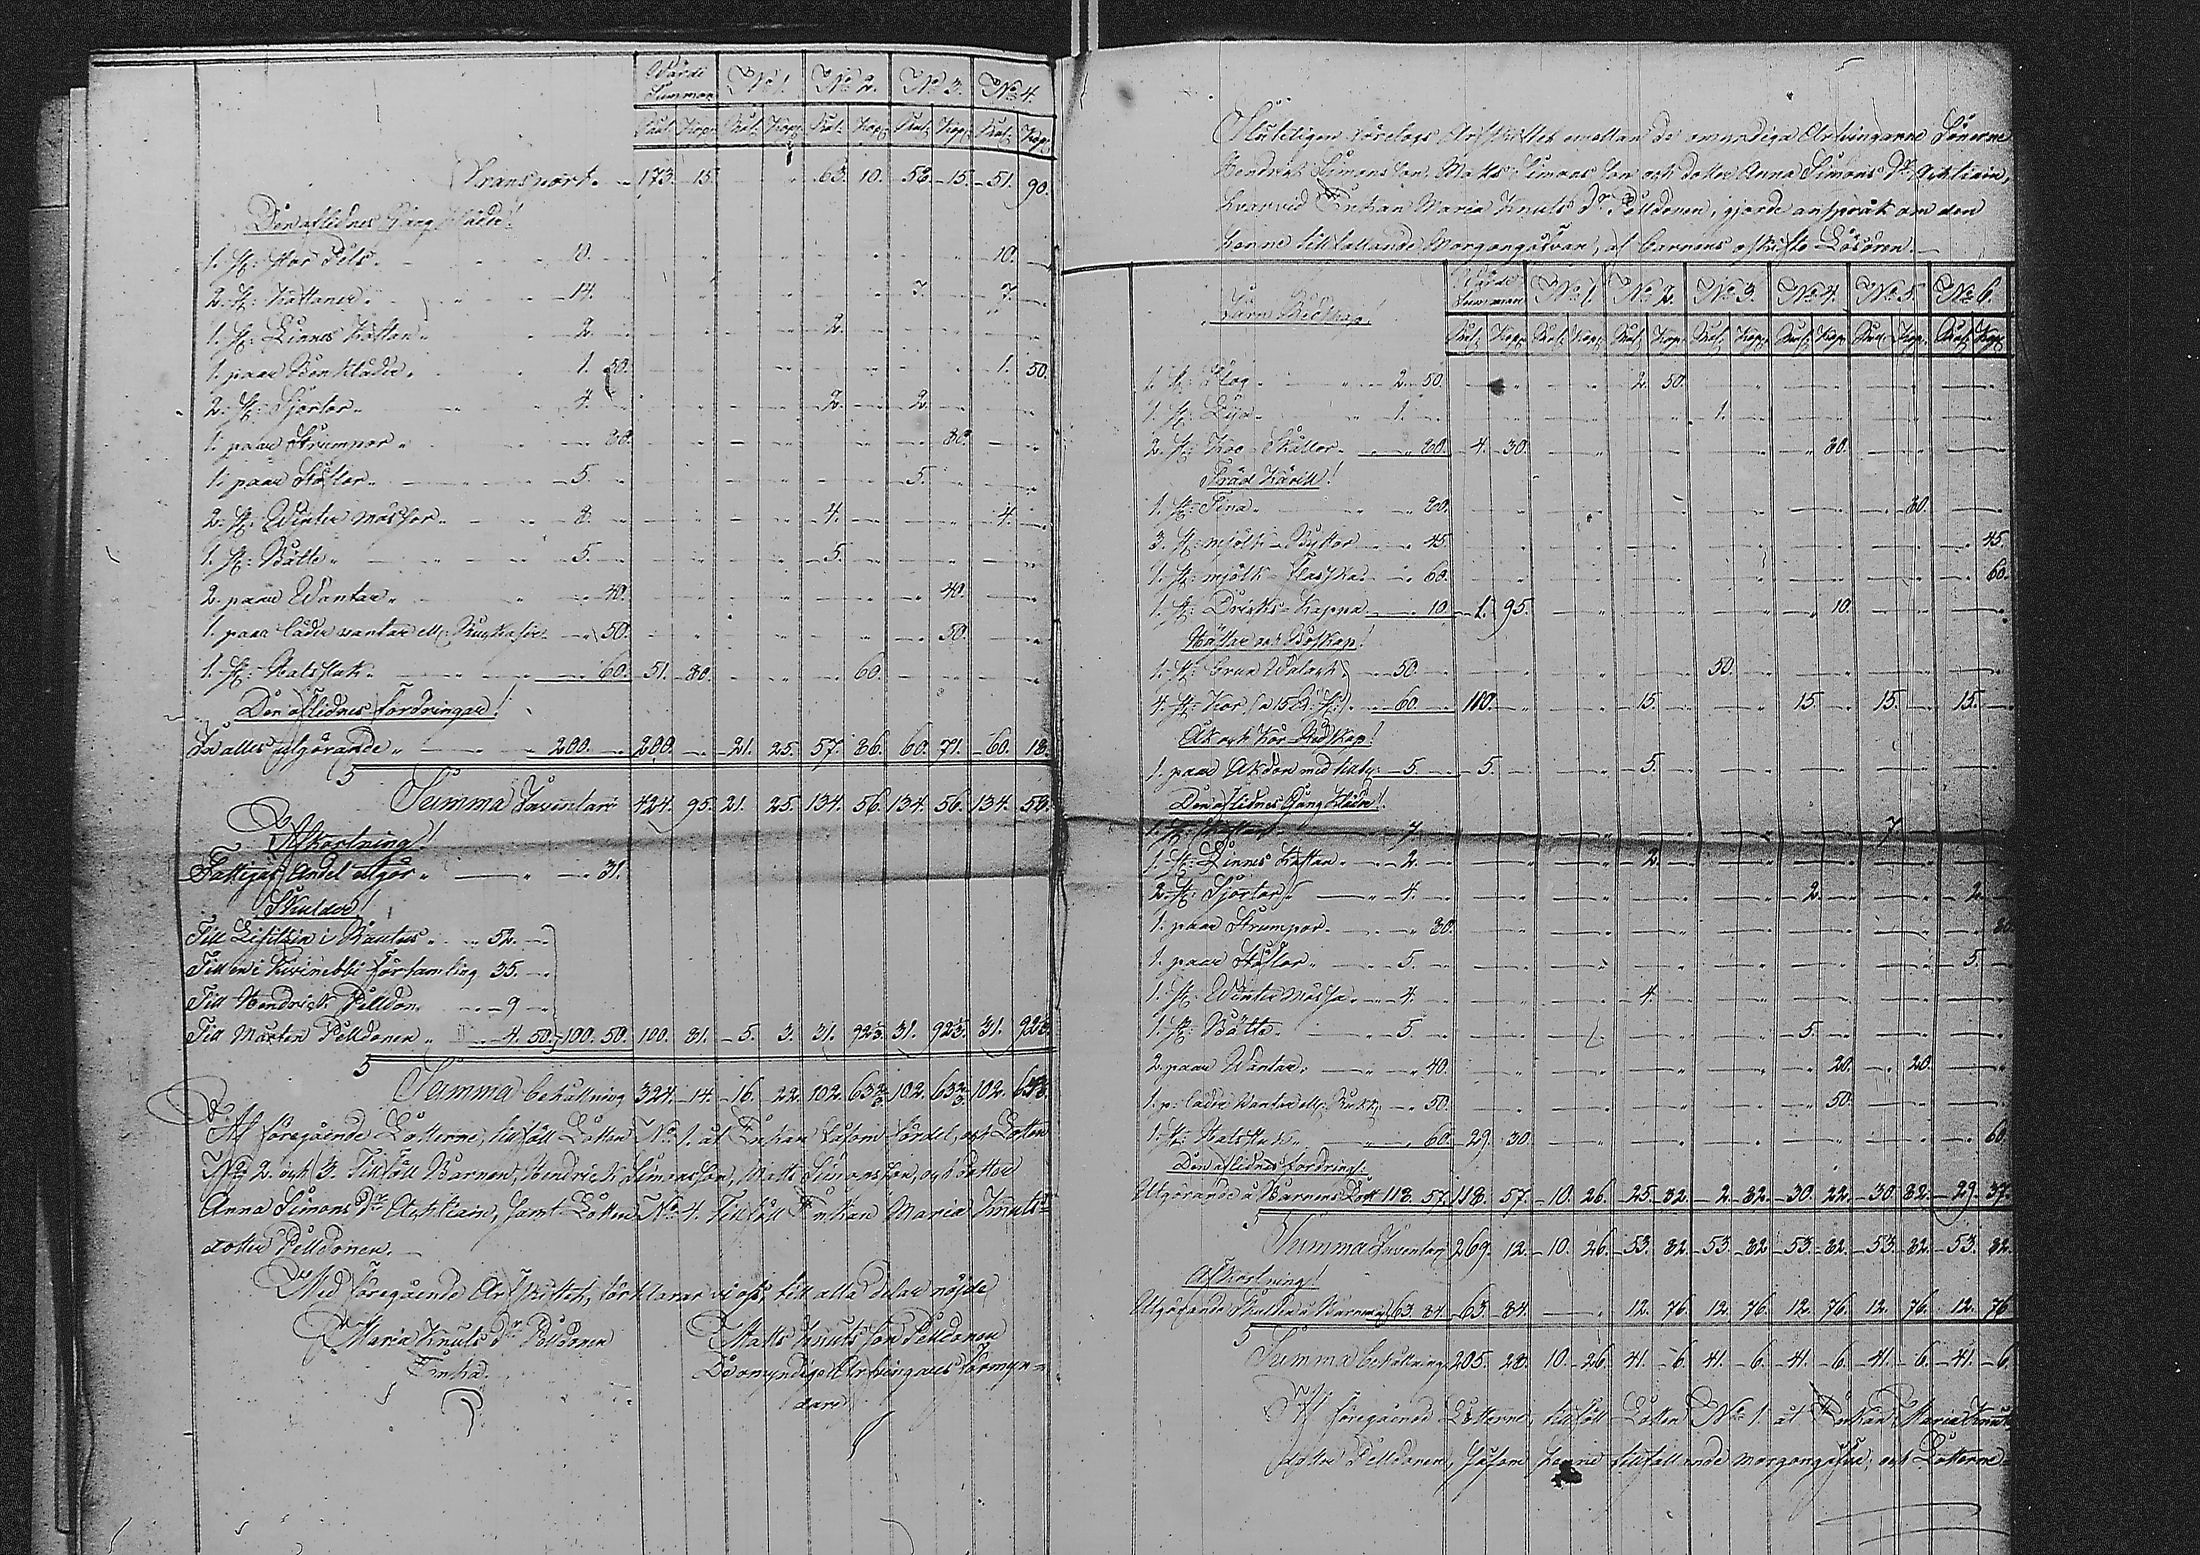 Värde Summan N:o 1. N:o 2. N:o 3. N:o 4.
Rub: Kop: Rub: Kop: Rub: Kop: Rub: Kop: Rub: Kop:
Transport 173. 15. 63. 10. 53. 15. 51. 90.
Den aflidnes Gång Kläder!
1. st: Pels 10. 10.
2. st: Kaftaner 14. 7. 7.
1. st: Linnes Kaftan 2. 2.
1. paar Benkläder 1. 50. 1. 50.
2. st: Sjortor 4. 2. 2.
1. paar Strumpor 80. 80.
1. paar Stöflor 5. 5.
2. st: Winter mössor 8. 4. 4.
1. st: Bälte 5. 5.
2. paar Wantar 40. 40.
1. paar läder wantar ell: 50. 50.
1. st: Halsduk 60. 51. 80. 60.
Den aflidnes fordringar!
I allt utgörande 200. 200. 21. 25. 57. 86. 60. 71. 60. 18.
Summa Inventarie 424. 95. 21. 25. 134. 56. 134. 56. 134. 58.
Afkortning!
Fattigas Andel utgör 31.
Skulder!
Till i 52.
Till en i Kivinebbi församling 35.
Till Hendrick Pelldon 9
Till Mårten Pelldonen 4. 50. 100. 50. 100. 81. 5. 3. 31. 92⅔ 31. 92⅔ 31. 92⅔
Summa behållning 324. 14. 16. 22. 102. 63⅔ 102. 63⅔ 102. 63⅔
Af föregående Lotterne, tillföll Lotten N:o 1. åt Enkan såsom fördel, och Lotten
N:o 2. och 3. Tillföll Barnen, Hendrick Simonsson, Matts Simonsson, och dotter
Anna Simons Dr samt Lotten N:o 4. Tillföll Enkan Maria Knuts
dotter Pelldonen.
Med föregående Arfskiftet, förklarar vi oss, till alla delar nöjde
Maria Knuts Dr Pelldonen Matts Knuts son Pelldonen
Enka. De omyndige Arfvingares förmyn-
dare
Sluteligen företogs Arfskiftet emellan de omyndiga Arfvingarne Sönerne
Hendrick Simons son, Matts Simons son och dotter Anna Simons Dr
hvarvid Enkan Maria Knuts Dr Pelldonen, gjorde anspråk om den
henne tillfallande Morgongåfvan, af barnens oskifte Lösören.
Värde Summan N:o 1. N:o 2. N:o 3. N:o 4. N:o 5. N:o 6.
Järn Redskap!
Rub: Kop: Rub: Kop: Rub: Kop: Rub: Kop: Rub: Kop: Rub: Kop: Rub: Kop:
1. st: Plog 2. 50. 2. 50.
1. st: Lija 1. 1.
2. st: Koo-Skällor 80. 4. 30. 80.
Träd Käril!
1. st: Tina 80. 80.
3. st: mjölk-Byttor 45. 45.
1. st: mjölk-flaska 60. 60.
1. st: Dricks-Kappa 10. 1. 95. 10.
Hästar och Boskap!
1. st: brun Walack 50. 50.
4. st: Kor (a 15 R: st:) 60. 110. 15. 15. 15. 15.
Åk och Kör-Redskap!
1. paar Åkdon med tillbeh: 5. 5. 5.
Den aflidnes Gång Kläder!
1. st: Kaftan 7. 7
1. st: Linnes Kaftan 2. 2.
2. st: Sjortor 4. 2. 2.
1. paar Strumpor 80. 80.
1. paar Stöflor 5. 5.
1. st: Winter Mössa 4. 4
1. st: Bälte 5. 5.
2 paar Wantar 40. 20. 20.
1. p: läder Wantar ell: 50. 50.
1. st: Halsduk 60. 29. 30. 60.
Den aflidnes fordring!
Utgörande å Barnens Lott 118. 57. 118. 57. 10. 26. 25. 32. 2. 82. 30. 22. 30. 82. 29. 37.
Summa Inventari 269. 12. 10. 26. 53. 82. 53. 82. 53. 82. 53. 82. 53. 82.
Afkortning!
Utgörande Skulden å Barnens 63. 84. 63. 84. 12. 76. 12. 76. 12. 76. 12. 76. 12. 76
Summa behållning 205. 28. 10. 26. 41. 6. 41. 6. 41. 6. 41. 6. 41. 6.
Af föregående Lotterne, tillföll Lotten N:o 1. åt Enkan Maria Knuts
dotter Pelldonen, såsom henne tillfallande morgongåfva, och Lotterne